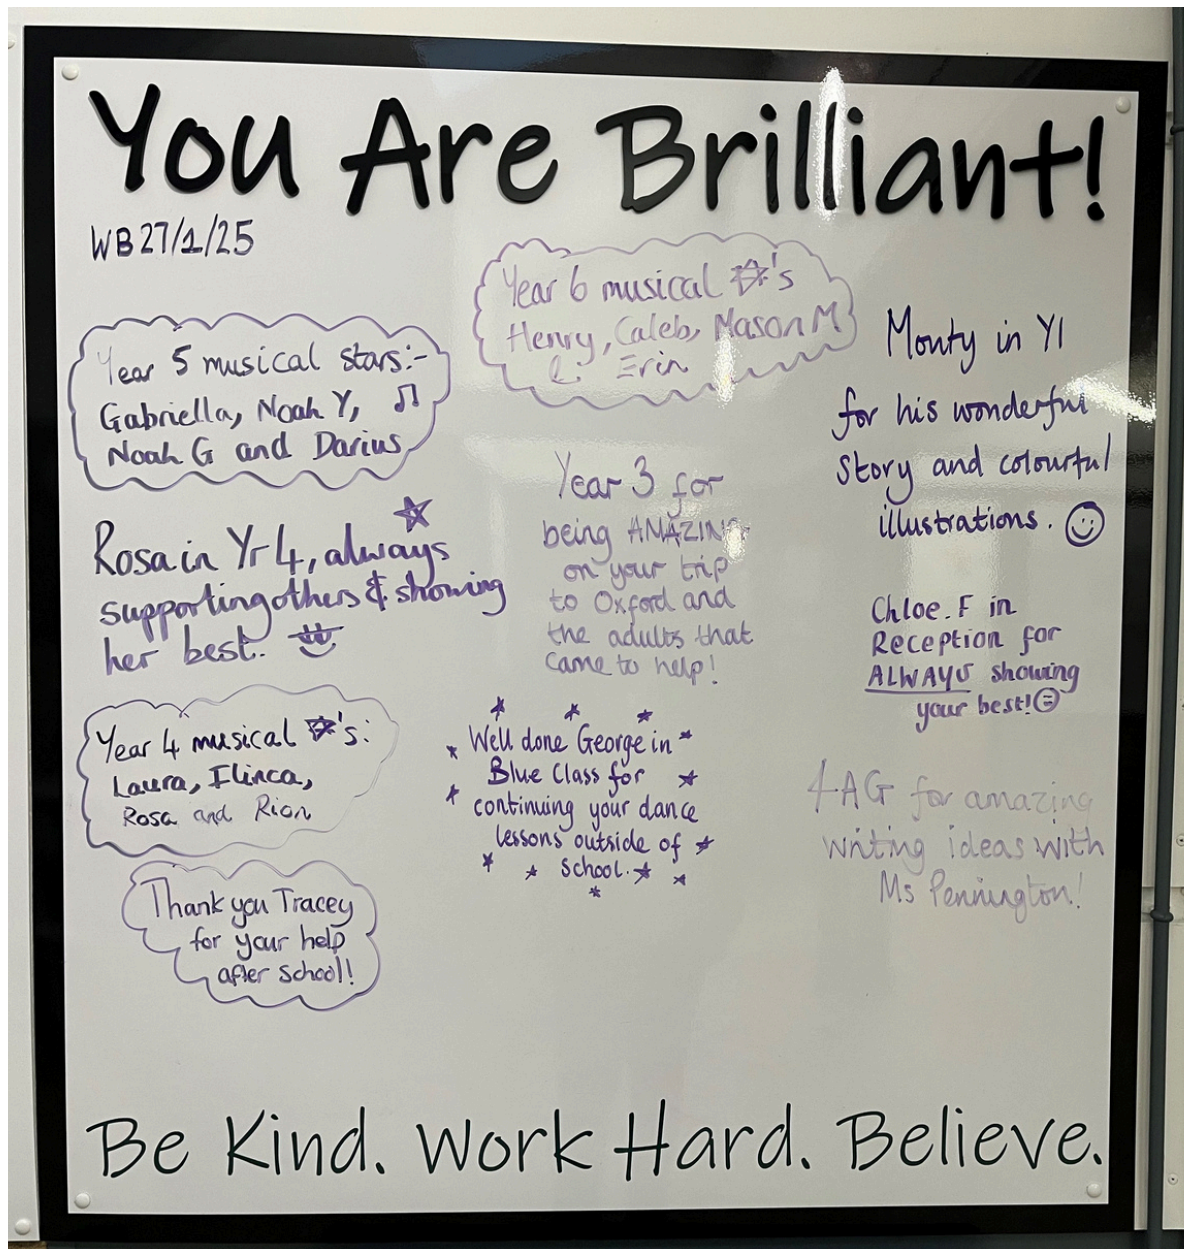 You Are Brilliant!
WB 27/1/25
Year 5 musical stars:-
Gabriella, Noah Y,
Noah G and Darius
Rosa in Yr 4, always
supporting others & showing
her best.
Year 4 musical ☆'s:
Laura, Ilinca,
Rosa and Rion
Thank you Tracey
for your help
after school!
Year 6 musical ☆'s
Henry, Caleb, Mason M
& Erin
Year 3 for
being AMAZING
on your trip
to Oxford and
the adults that
came to help!
Well done George in
Blue Class for
continuing your dance
lessons outside of
school.
Monty in Y1
for his wonderful
story and colourful
illustrations.
Chloe.F in
Reception for
ALWAYS showing
your best!
4AG for amazing
writing ideas with
Ms Pennington!
Be Kind. Work Hard. Believe.